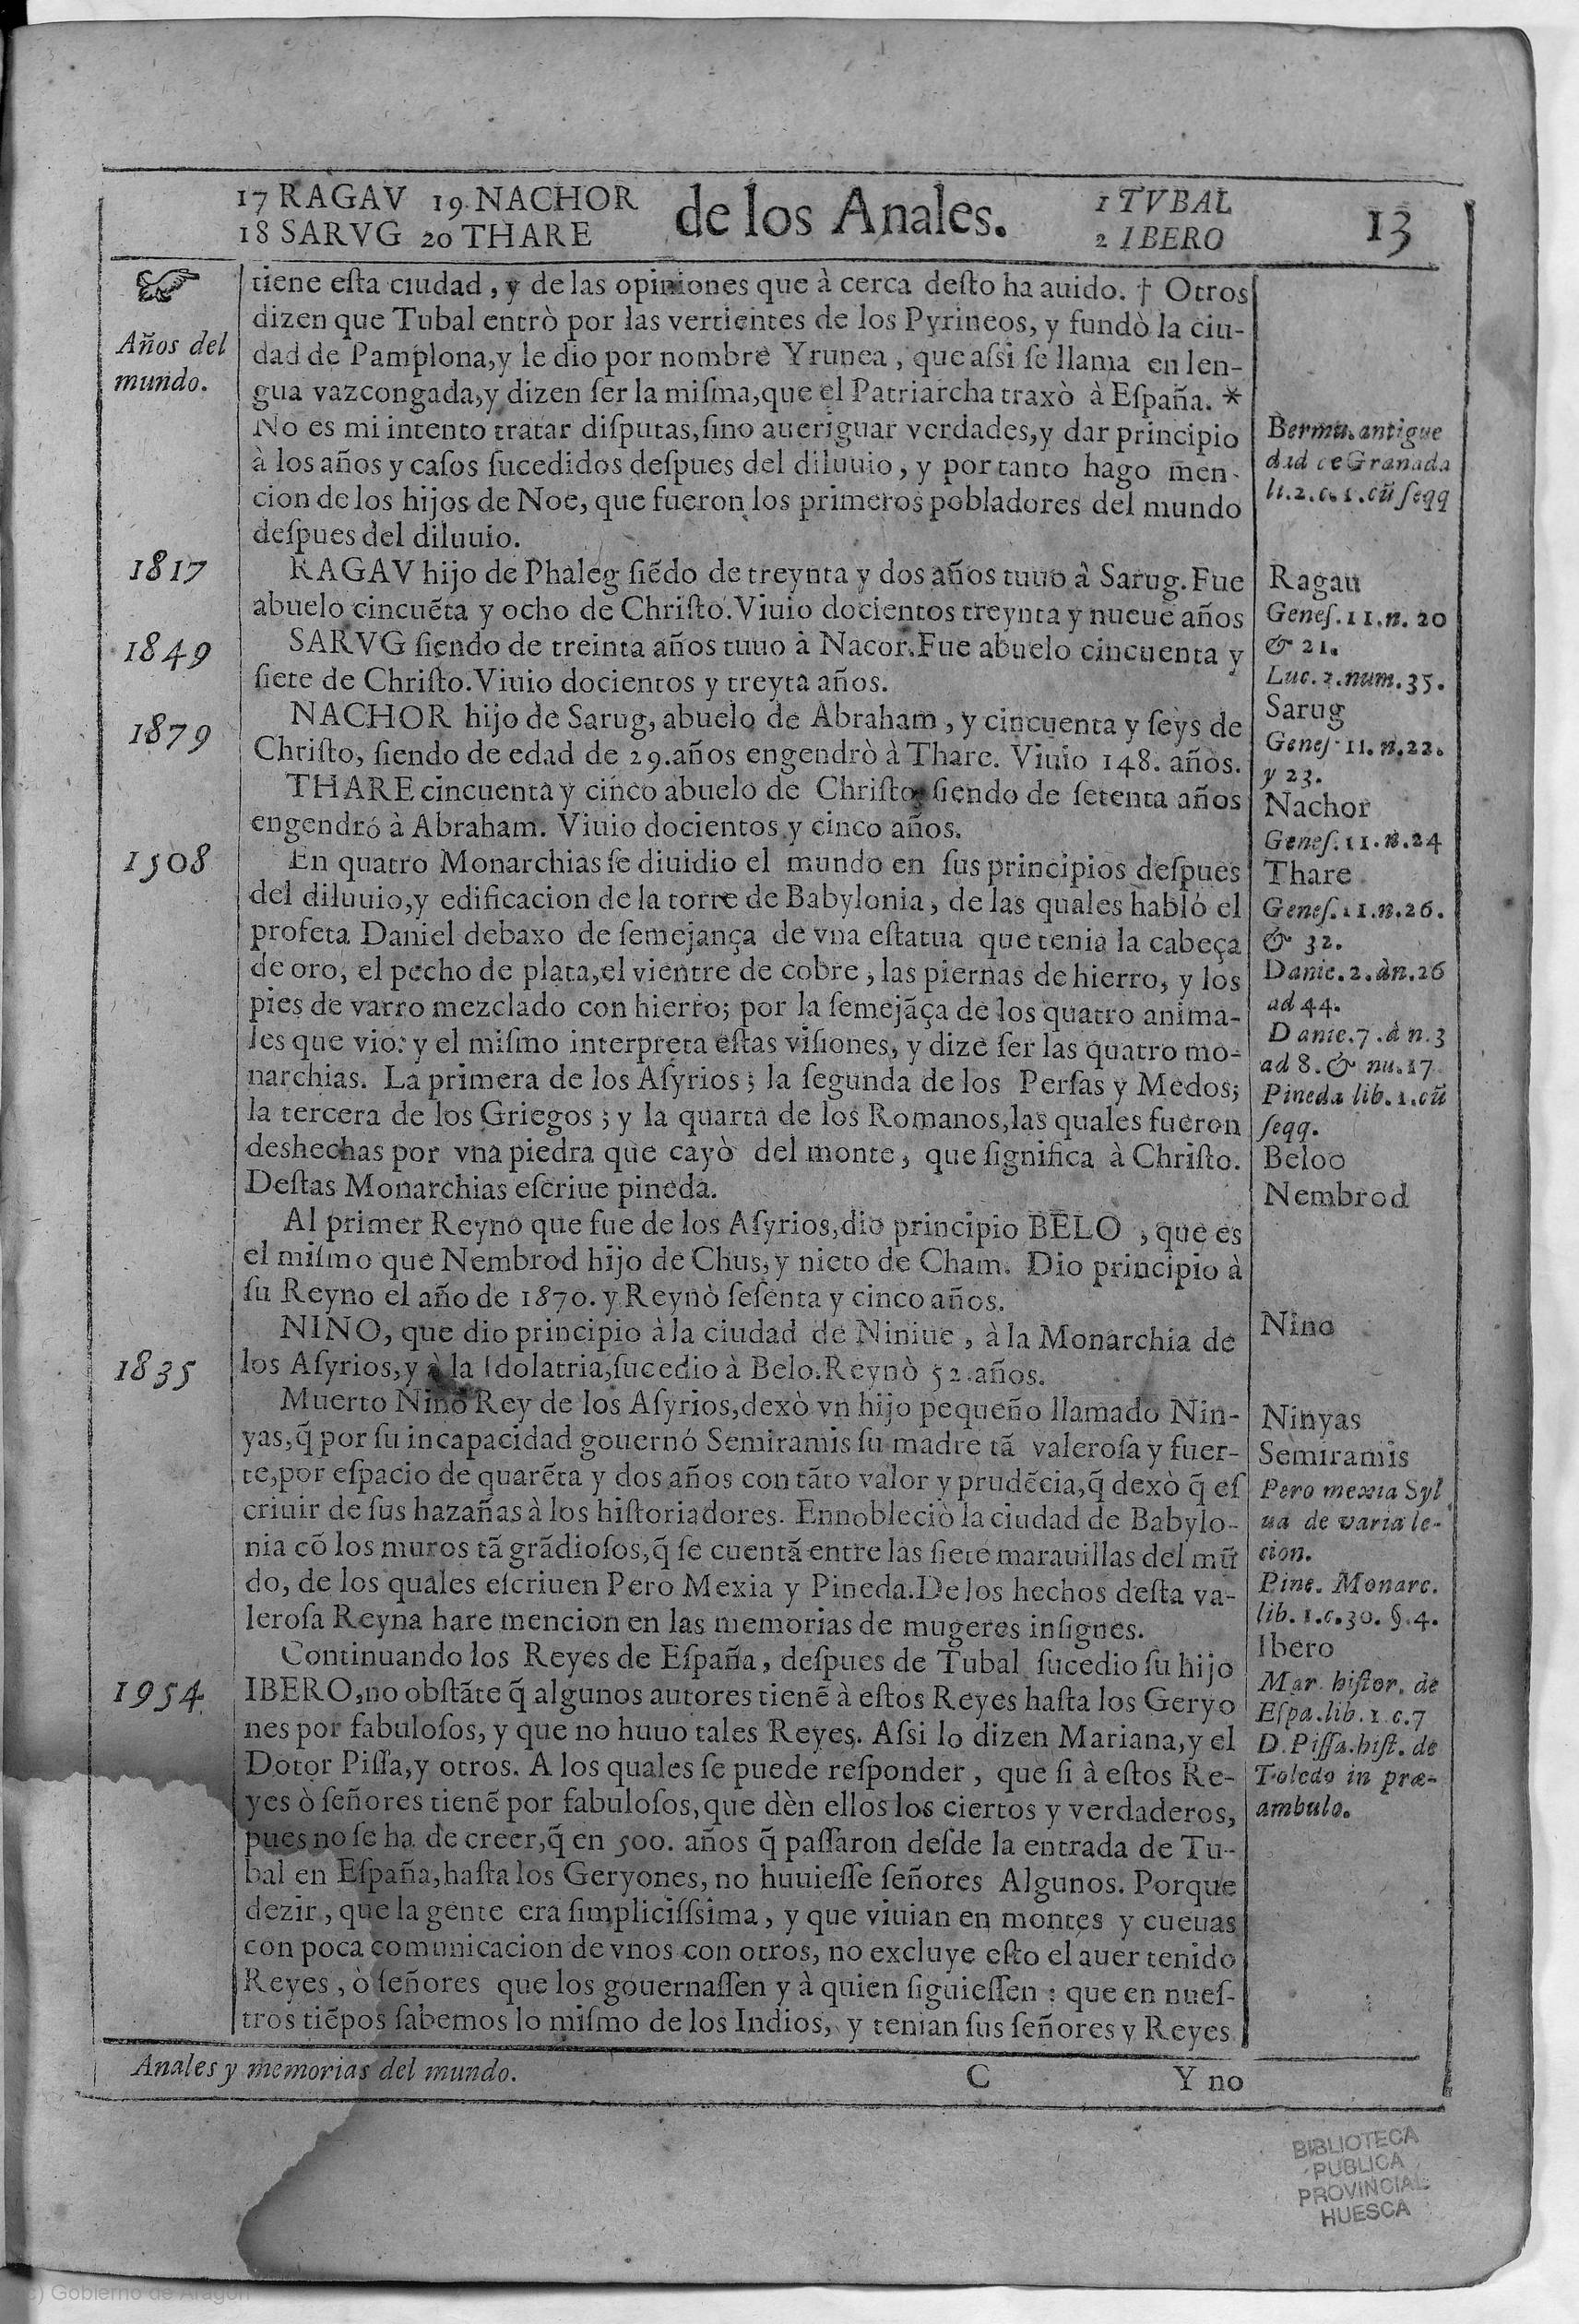 17 RAGAV 19 NACHOR
18 SARVG 20 THARE
de los Anales.
1 TVBAL
2 IBERO
13
Años del
mundo.
tiene esta ciudad, y de las opiniones que à cerca desto ha auido. † Otros
dizen que Tubal entrò por las vertientes de los Pyrineos, y fundò la ciu-
dad de Pamplona, y le dio por nombre Yrunea, que assi se llama en len-
gua vazcongada, y dizen ser la misma, que el Patriarcha traxò à España. *
No es mi intento tratar disputas, sino aueriguar verdades, y dar principio
à los años y casos sucedidos despues del diluuio, y por tanto hago men-
cion de los hijos de Noe, que fueron los primeros pobladores del mundo
despues del diluuio.
Bermu. antigue
dad de Granada
li. 2. c. 1. cū seqq
1817
RAGAV hijo de Phaleg siẽdo de treynta y dos años tuuo à Sarug. Fue
abuelo cincuẽta y ocho de Christo. Viuio docientos treynta y nueue años
Ragau
Genes. 11. n. 20
& 21.
Luc. 2. num. 35.
1849
SARVG siendo de treinta años tuuo à Nacor. Fue abuelo cincuenta y
siete de Christo. Viuio docientos y treyta años.
Sarug
Genes. 11. n. 22.
y 23.
1879
NACHOR hijo de Sarug, abuelo de Abraham, y cincuenta y seys de
Christo, siendo de edad de 29. años engendrò à Thare. Viuio 148. años.
Nachor
Genes. 11. n. 24
THARE cincuenta y cinco abuelo de Christo, siendo de setenta años
engendró à Abraham. Viuio docientos y cinco años.
Thare
Genes. 11. n. 26.
& 32.
1508
En quatro Monarchias se diuidio el mundo en sus principios despues
del diluuio, y edificacion de la torre de Babylonia, de las quales habló el
profeta Daniel debaxo de semejança de vna estatua que tenia la cabeça
de oro, el pecho de plata, el vientre de cobre, las piernas de hierro, y los
pies de varro mezclado con hierro; por la semejãça de los quatro anima-
les que vio: y el mismo interpreta estas visiones, y dize ser las quatro mo-
narchias. La primera de los Asyrios; la segunda de los Persas y Medos;
la tercera de los Griegos; y la quarta de los Romanos, las quales fueron
deshechas por vna piedra que cayò del monte, que significa à Christo.
Destas Monarchias escriue pineda.
Danie. 2. àn. 26
ad 44.
Danie. 7. à n. 3
ad 8. & nu. 17
Pineda lib. 1. cū
seqq.
Beloo
Nembrod
Al primer Reyno que fue de los Asyrios, dio principio BELO, que es
el mismo que Nembrod hijo de Chus, y nieto de Cham. Dio principio à
su Reyno el año de 1870. y Reynò sesenta y cinco años.
1835
NINO, que dio principio à la ciudad de Niniue, à la Monarchia de
los Asyrios, y à la Idolatria, sucedio à Belo. Reynò 52. años.
Nino
Muerto Nino Rey de los Asyrios, dexò vn hijo pequeño llamado Nin-
yas, q̃ por su incapacidad gouernó Semiramis su madre tã valerosa y fuer-
te, por espacio de quarẽta y dos años con tãto valor y prudẽcia, q̃ dexò q̃ es
criuir de sus hazañas à los historiadores. Ennobleciò la ciudad de Babylo-
nia cõ los muros tã grãdiosos, q̃ se cuentã entre las siete marauillas del mũ
do, de los quales escriuen Pero Mexia y Pineda. De los hechos desta va-
lerosa Reyna hare mencion en las memorias de mugeres insignes.
Ninyas
Semiramis
Pero mexia Syl
ua de varia le-
cion.
Pine. Monarc.
lib. 1. c. 30. §. 4.
1954
Continuando los Reyes de España, despues de Tubal sucedio su hijo
IBERO, no obstãte q̃ algunos autores tienẽ à estos Reyes hasta los Geryo
nes por fabulosos, y que no huuo tales Reyes. Assi lo dizen Mariana, y el
Dotor Pissa, y otros. A los quales se puede responder, que si à estos Re-
yes ò señores tienẽ por fabulosos, que dèn ellos los ciertos y verdaderos,
pues no se ha de creer, q̃ en 500. años q̃ passaron desde la entrada de Tu-
bal en España, hasta los Geryones, no huuiesse señores Algunos. Porque
dezir, que la gente era simplicisssima, y que viuian en montes y cueuas
con poca comunicacion de vnos con otros, no excluye esto el auer tenido
Reyes, ò señores que los gouernassen y à quien siguiessen: que en nues-
tros tiẽpos sabemos lo mismo de los Indios, y tenian sus señores y Reyes
Ibero
Mar. histor. de
Espa. lib. 1. c. 7
D. Pissa. hist. de
Toledo in præ-
ambulo.
Anales y memorias del mundo.
C
Y no
BIBLIOTECA
PUBLICA
PROVINCIAL
HUESCA
(c) Gobierno de Aragón